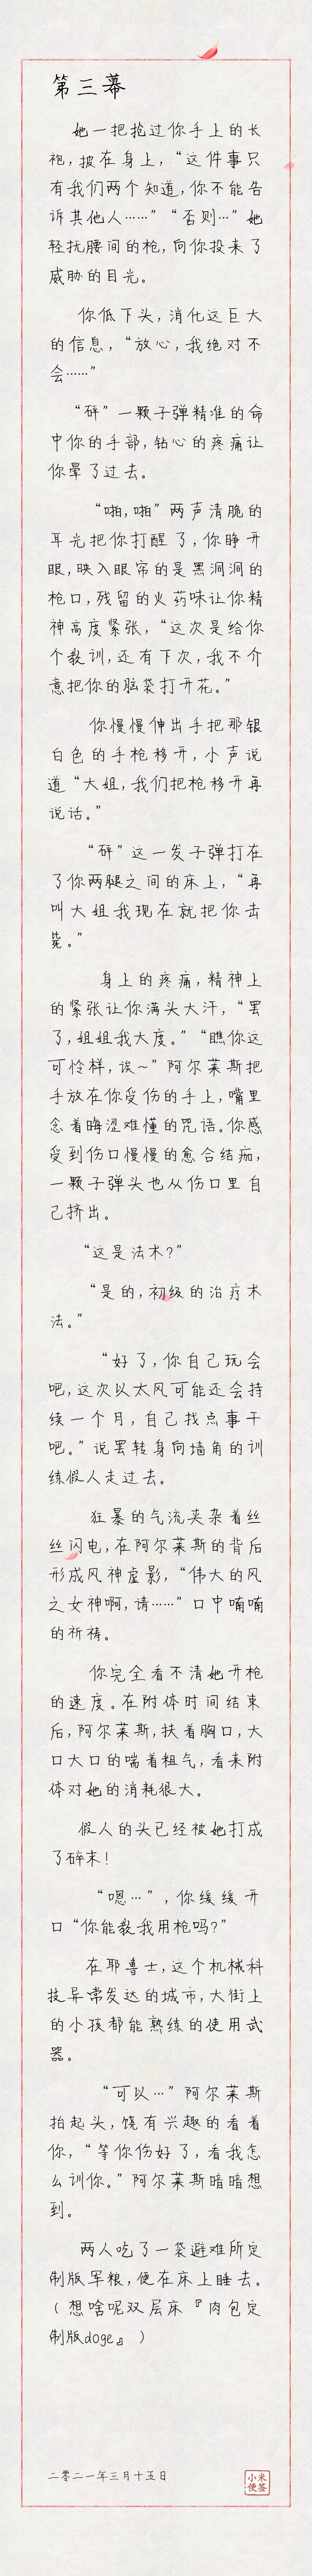 第三幕
她一把抢过你手上的长
袍,披在身上,“这件事只
有我们两个知道,你不能告
诉其他人……”“否则…”她
轻抚腰间的枪,向你投来了
威胁的目光。
你低下头,消化这巨大
的信息,“放心,我绝对不
会……”
“砰”一颗子弹精准的命
中你的手部,钻心的疼痛让
你晕了过去。
“啪,啪”两声清脆的
耳光把你打醒了,你睁开
眼,映入眼帘的是黑洞洞的
枪口,残留的火药味让你精
神高度紧张,“这次是给你
个教训,还有下次,我不介
意把你的脑袋打开花。”
你慢慢伸出手把那银
白色的手枪移开,小声说
道“大姐,我们把枪移开再
说话。”
“砰”这一发子弹打在
了你两腿之间的床上,“再
叫大姐我现在就把你击
毙。”
身上的疼痛,精神上
的紧张让你满头大汗,“罢
了,姐姐我大度。”“瞧你这
可怜样,诶~”阿尔莱斯把
手放在你受伤的手上,嘴里
念着晦涩难懂的咒语。你感
受到伤口慢慢的愈合结痂,
一颗子弹头也从伤口里自
己挤出。
“这是法术?”
“是的,初级的治疗术
法。”
“好了,你自己玩会
吧,这次以太风可能还会持
续一个月,自己找点事干
吧。”说罢转身向墙角的训
练假人走过去。
狂暴的气流夹杂着丝
丝闪电,在阿尔莱斯的背后
形成风神虚影,“伟大的风
之女神啊,请……”口中喃喃
的祈祷。
你完全看不清她开枪
的速度。在附体时间结束
后,阿尔莱斯,扶着胸口,大
口大口的喘着粗气,看来附
体对她的消耗很大。
假人的头已经被她打成
了碎末!
“嗯…”,你缓缓开
口“你能教我用枪吗?”
在耶鲁士,这个机械科
技异常发达的城市,大街上
的小孩都能熟练的使用武
器。
“可以…”阿尔莱斯
抬起头,饶有兴趣的看着
你,“等你伤好了,看我怎
么训你。”阿尔莱斯暗暗想
到。
两人吃了一袋避难所定
制版军粮,便在床上睡去。
(想啥呢双层床『肉包定
制版doge』)
二零二一年三月十五日
小米
便签